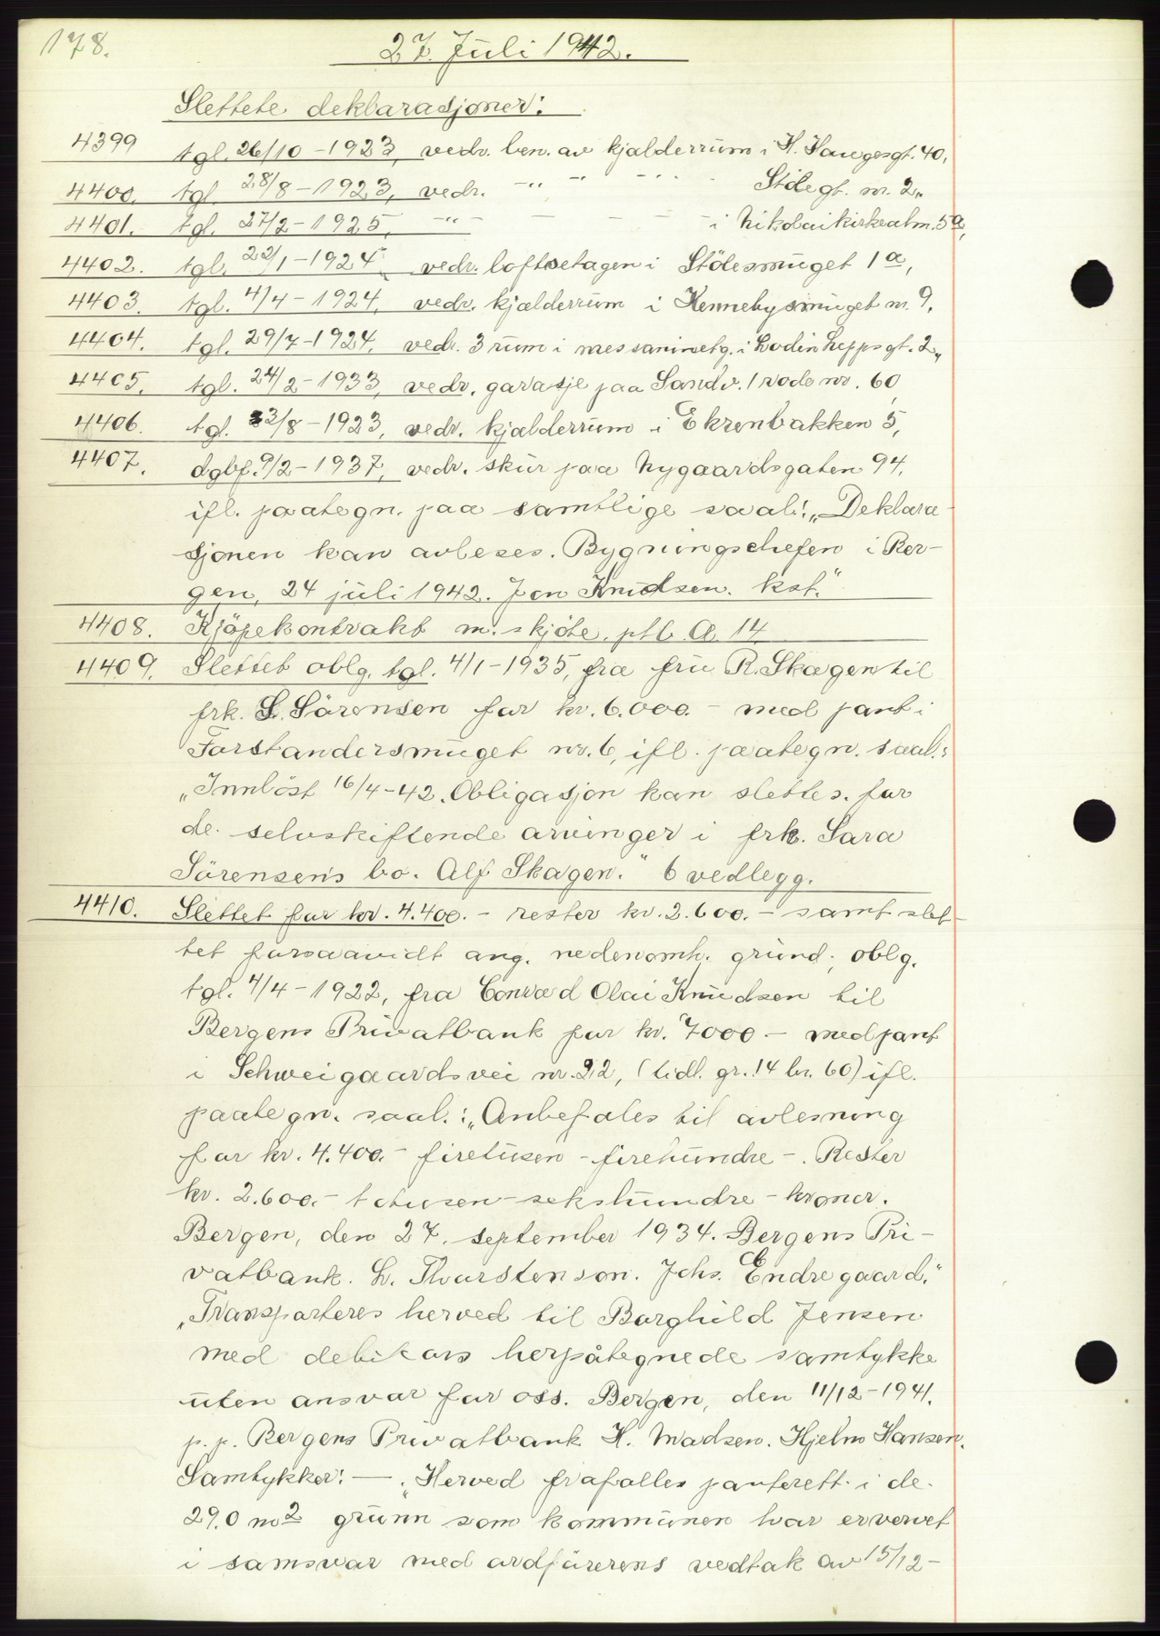 178.
27. Juli 1942.
Slettete deklarasjoner:
4399 tgl. 26/10-1923, vedr. ben. av kjælderrum i H. Haugesgt. 40,
4400. tgl. 28/8-1923, vedr. -"- " - " - Stölegt. nr. 2,
4401. tgl. 27/2-1925, -"- - - - i Nikolaikirkealm. 5a,
4402. tgl. 22/1-1924 vedr. loftsetagen i Stölesmuget 1a,
4403. tgl. 4/4-1924, vedr. kjælderrum i Kennebysmuget nr. 9,
4404. tgl. 29/7-1924, vedr. 3 rum i messaninetg. i Lodin Leppsgt. 2,
4405. tgl. 24/2-1933, vedr. garasje paa Sandv. 1 rode nr. 60
4406. tgl. 23/8-1923, vedr. kjælderrum i Ekrenbakken 5,
4407. dgbf. 9/2-1937, vedr. skur paa Nygaardsgaten 94,
ifl. paategn. paa samtlige saal.: „Deklara-
sjonen kan avleses. Bygningschefen i Ber-
gen, 24 juli 1942. Jon Knudsen. kst."
4408. Kjöpekontrakt m. skjöte. ptb. A. 14
4409. Slettet oblg. tgl. 4/1-1935, fra fru R. Skagen til
frk. S. Sörensen for kr. 6.000.- med pant i
Forstandersmuget nr. 6, ifl. paategn. saal.:
„Innlöst 16/4-42. Obligasjon kan slettes. for
de selvskiftende arvinger i frk. Sara
Sörensens bo. Alf Skagen." 6 vedlegg.
4410. Slettet for kr. 4.400.- rester kr. 2.600.- samt slet-
tet forsaavidt ang. nedenomh. grund; oblg.
tgl. 4/4-1922, fra Conrad Olai Knudsen til
Bergens Privatbank for kr. 7000.- med pant
i Schweigaardsvei nr. 22, (tidl. gr. 14 br. 60) ifl.
paategn. saal.: „Anbefales til avlesning
for kr. 4.400.- firetusen-firehundre-. Rester
kr. 2.600.- totusen-sekshundre-kroner.
Bergen, den 27. september 1934. Bergens Pri-
vatbank. L. Thorstenson. Johs. Endregaard."
„Transporteres herved til Borghild Jensen
med debitors herpåtegnede samtykke
uten ansvar for oss. Bergen, den 11/12-1941.
p. p. Bergens Privatbank H. Madsen. Hjelm Hansen.
Samtykker: —. „Herved frafalles panterett i de
29.0 m2 grunn som kommunen har ervervet
i samsvar med ordförerens vedtak av 15/12-